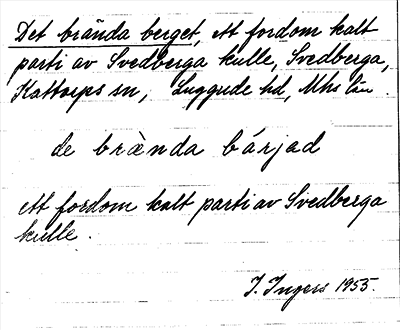 Det brända berget, ett fordom kalt
parti av Svedberga kulle, Svedberga,
Kattarps sn, Luggude hd, Mhs län.
de brànda bárjad
ett fordom kalt parti av Svedberga
kulle.
I. Ingers 1955.